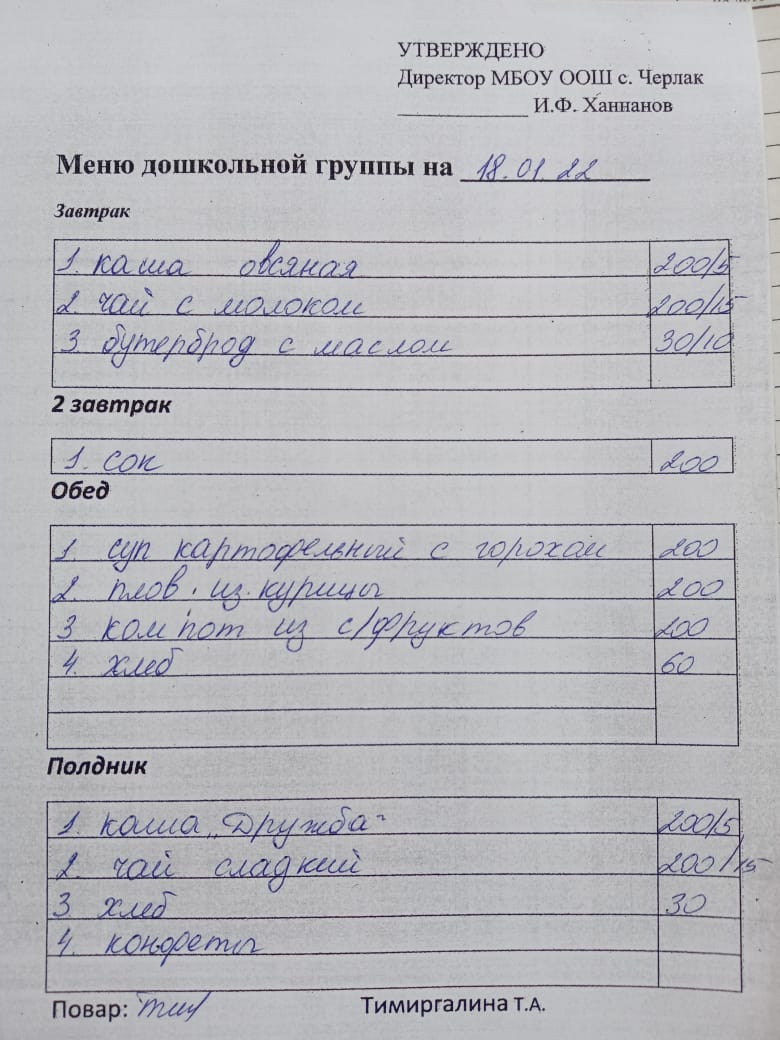 УТВЕРЖДЕНО
Директор МБОУ ООШ с. Черлак
____________ И.Ф. Ханнанов
Меню дошкольной группы на 18.01.22
Завтрак
1. каша овсяная 200/5
2. чай с молоком 200/15
3. бутерброд с маслом 30/10
2 завтрак
1. сок 200
Обед
1. суп картофельный с горохом 200
2. плов из курицы 200
3 компот из с/фруктов 200
4. хлеб 60
Полдник
1. каша „Дружба" 200/5
2 чай сладкий 200/15
3. хлеб 30
4. конфеты
Повар: Тимиргалина Т.А.